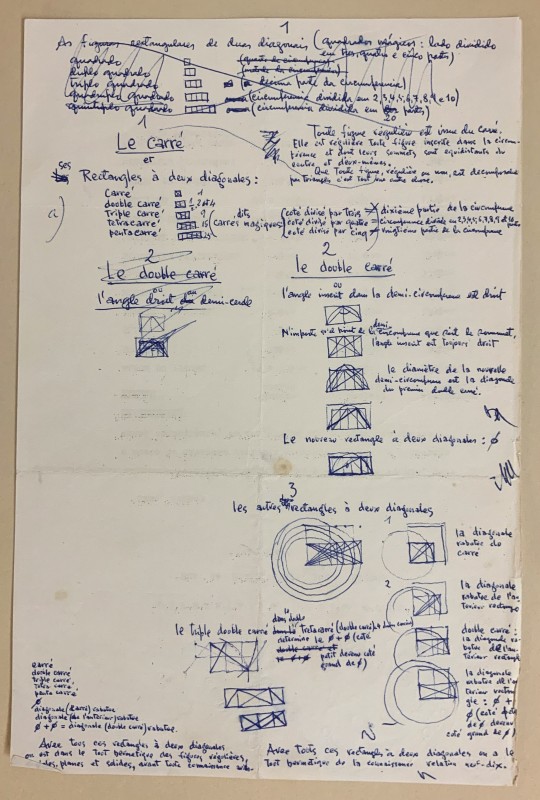 1
As figuras rectangulares de duas diagonais (quadrados mágicos: lado dividido
em tres, quatro e cinco partes)
quadrado
duplo quadrado
triplo quadrado décima parte da circumferencia)
quadruplo quadrado (circumferencia dividida em 2,3,4,5,6,7,8,9 e 10)
quintuplo quadrado (circumferencia dividida em 20 partes)
1
Le carré
et
ses
Rectangles à deux diagonales:
Toute figure régulière est issue du carré.
Elle est régulière toute figure inscrite dans la circom-
férence et dont leurs sommets sont equidistants du
centre et deux-mêmes.
Que toute figure, régulière ou non, est decomposable
par triangles c'est tout une autre chose.
a)
Carré 1
double carré 1, 2 et 4
Triple carré 9
Tetra carré 16
penta carré 25
dits
carrés magiques
(coté divisé par trois = dixième partie de la circumference
(coté divisé par quatre = circumference divisée en 2,3,4,5,6,7,8,9 et 10 parties
(coté divisé par cinq = vingtième partie de la circumference
2
Le double carré
ou
l'angle droit demi-cercle
2
le double carré
ou
l'angle inscrit dans la demi-circumference est droit
N'importe de la demi-circumference que soit le sommet,
l'angle inscrit est toujours droit
le diamètre de la nouvelle
demi-circumference est la diagonale
du premier double carré.
Le nouveau rectangle à deux diagonales: ø
3
les autres rectangles à deux diagonales
1
la diagonale
rabatue du
carré
2
la diagonale
rabatue de l'an-
térieur rectangle
double carré:
la diagonale ra-
batue de l'an-
térieur rectangle
la diagonale
rabatue de l'an-
térieur rectan-
gle: ø +
ø (coté
de ø devenu
coté grand de ø)
le triple double carré
Tetra carré (double carré)
determine le ø + ø (coté
double carré et petit devenu coté
grand de ø)
carré
double carré
triple carré
tetra carré
penta carré
ø
diagonale (carré) rabatue
diagonale de l'antérieur rabatue
ø + ø = diagonale (double carré) rabatue.
Avec tous ces rectangles à deux diagonales
on est dans le tout hermétique des figures régulières,
planes et solides, avant toute connaissance
Avec tous ces rectangles à deux diagonales on a le
tout hermétique de la connaissance relation neuf-dix.